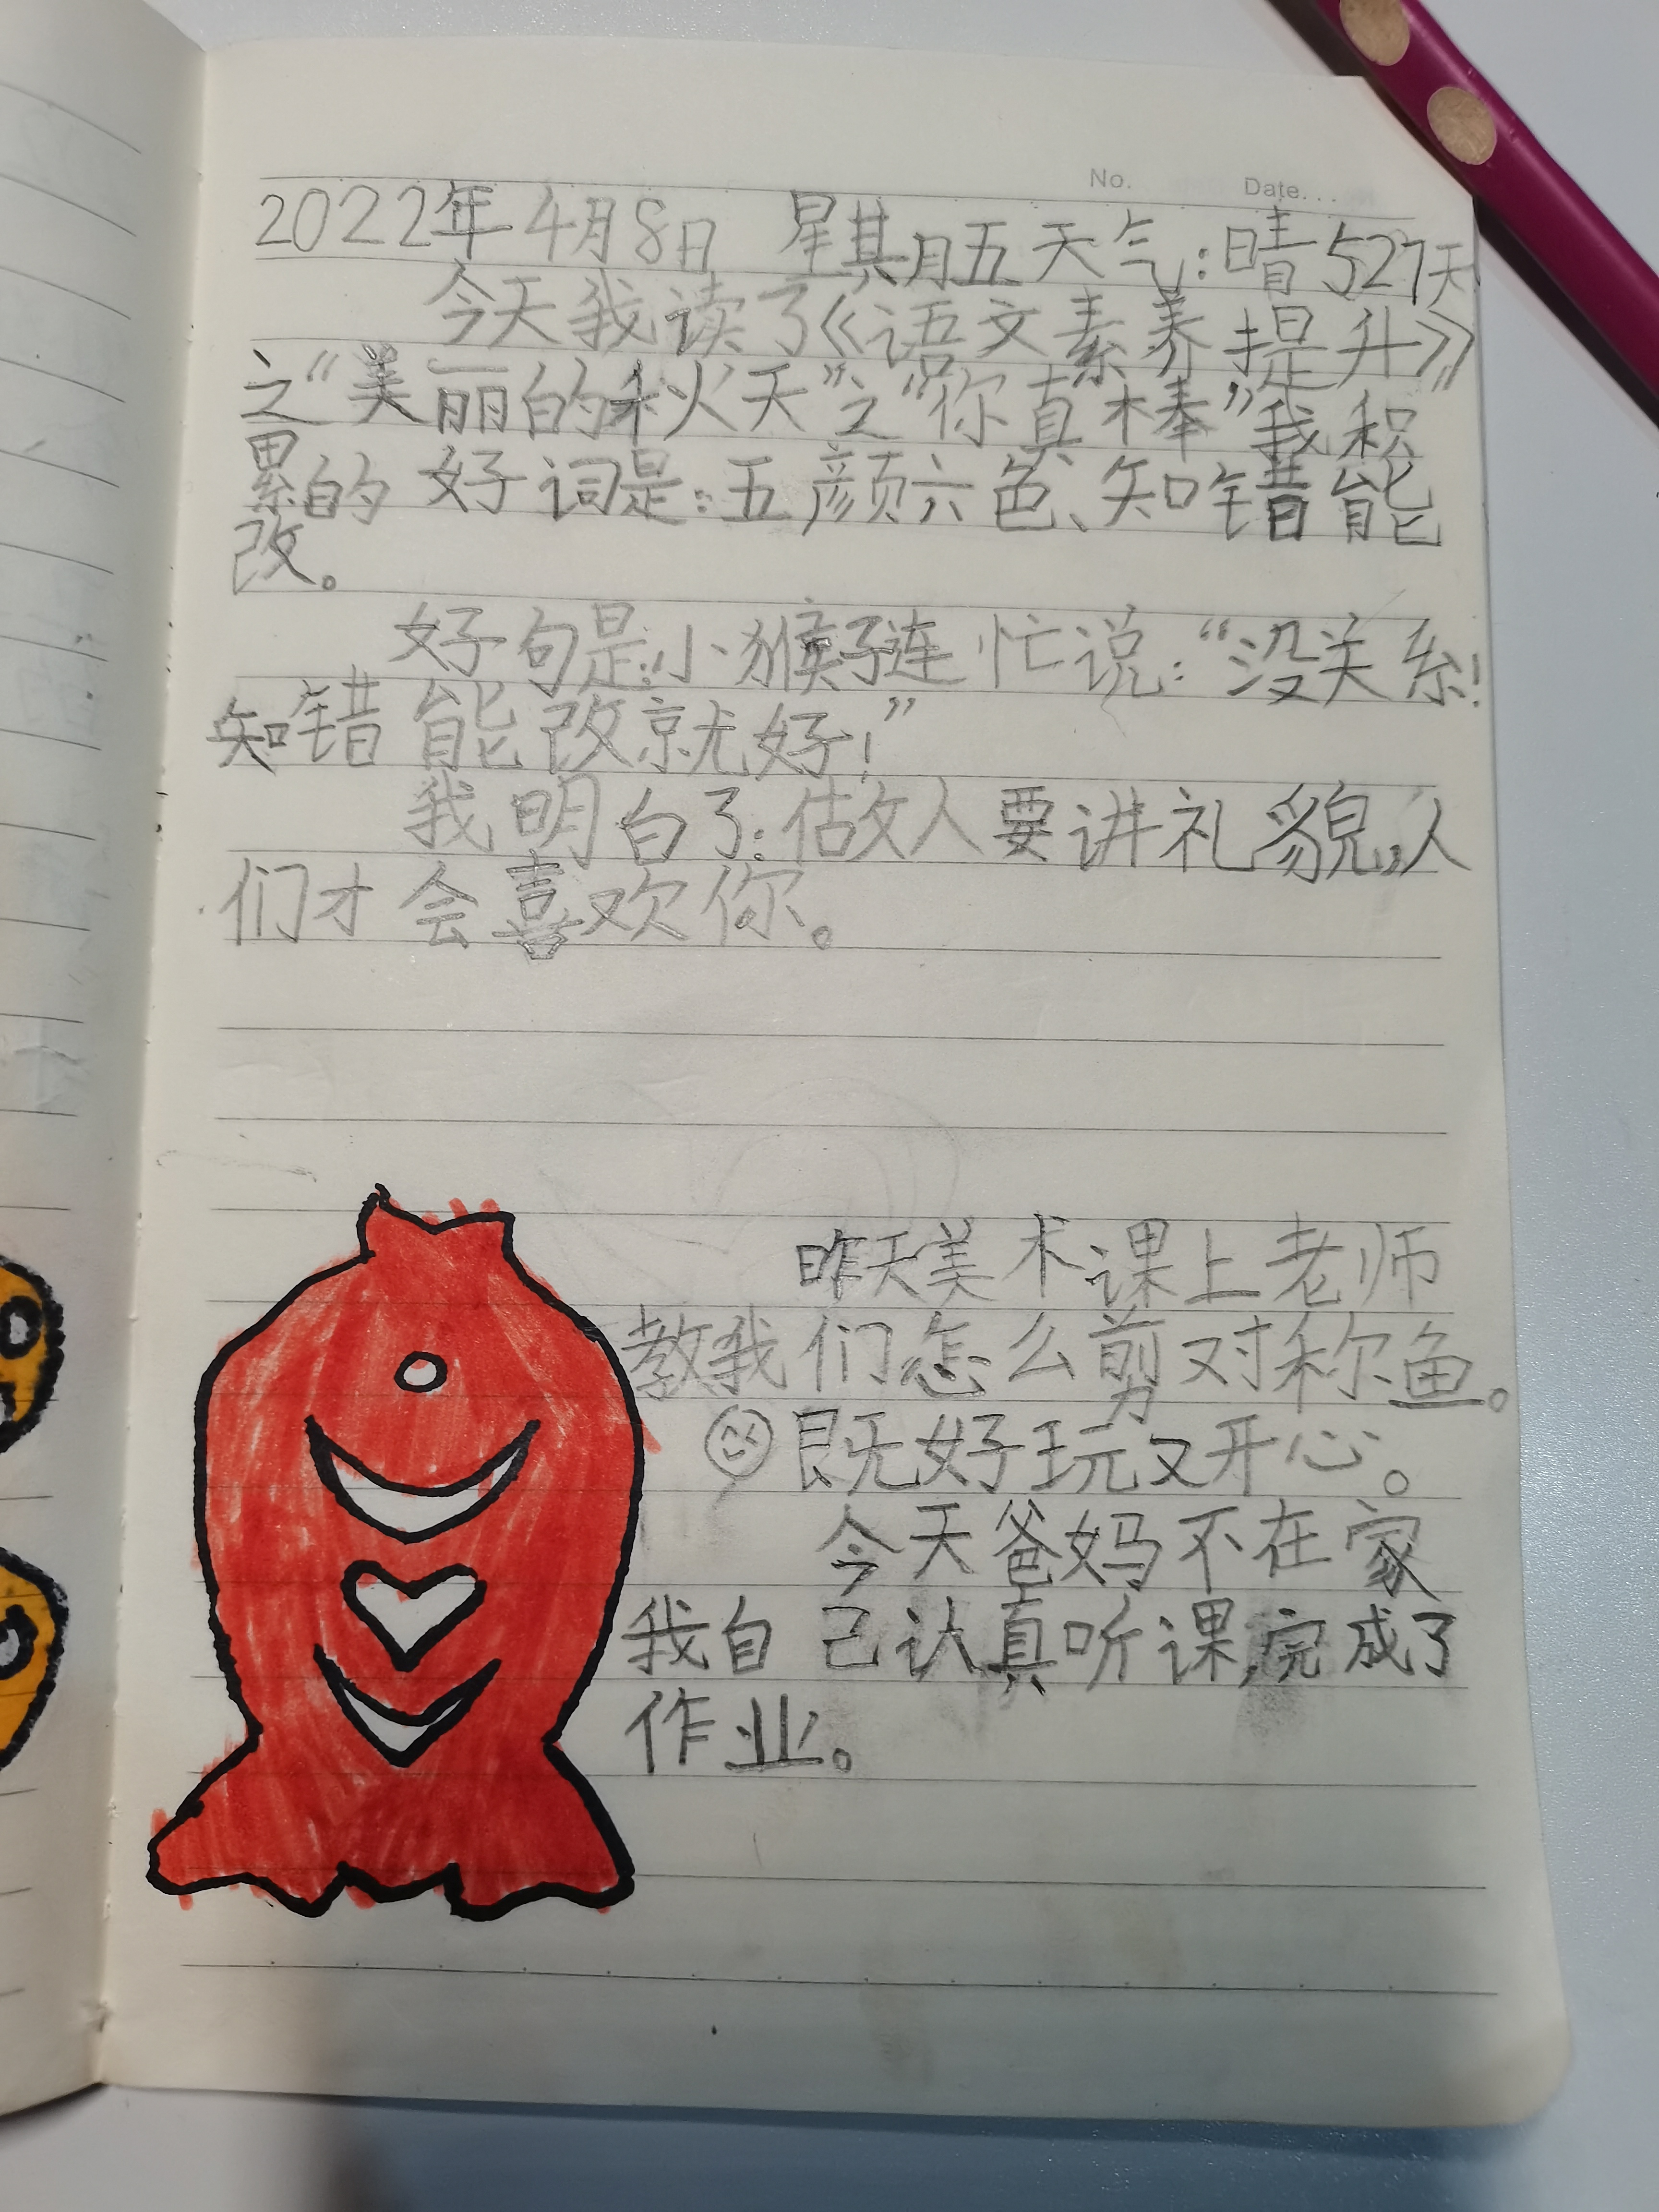 No.
Date...
2022年4月8日 星期五天气:晴527天
今天我读了《语文素养提升》
之“美丽的秋天”之“你真棒”我积
累的好词是:五颜六色、知错能
改。
好句是:小猴子连忙说:“没关系!
知错能改就好!”
我明白了:做人要讲礼貌,人
们才会喜欢你。
昨天美术课上老师
教我们怎么剪对称鱼。
既好玩又开心。
今天爸妈不在家
我自己认真听课,完成了
作业。